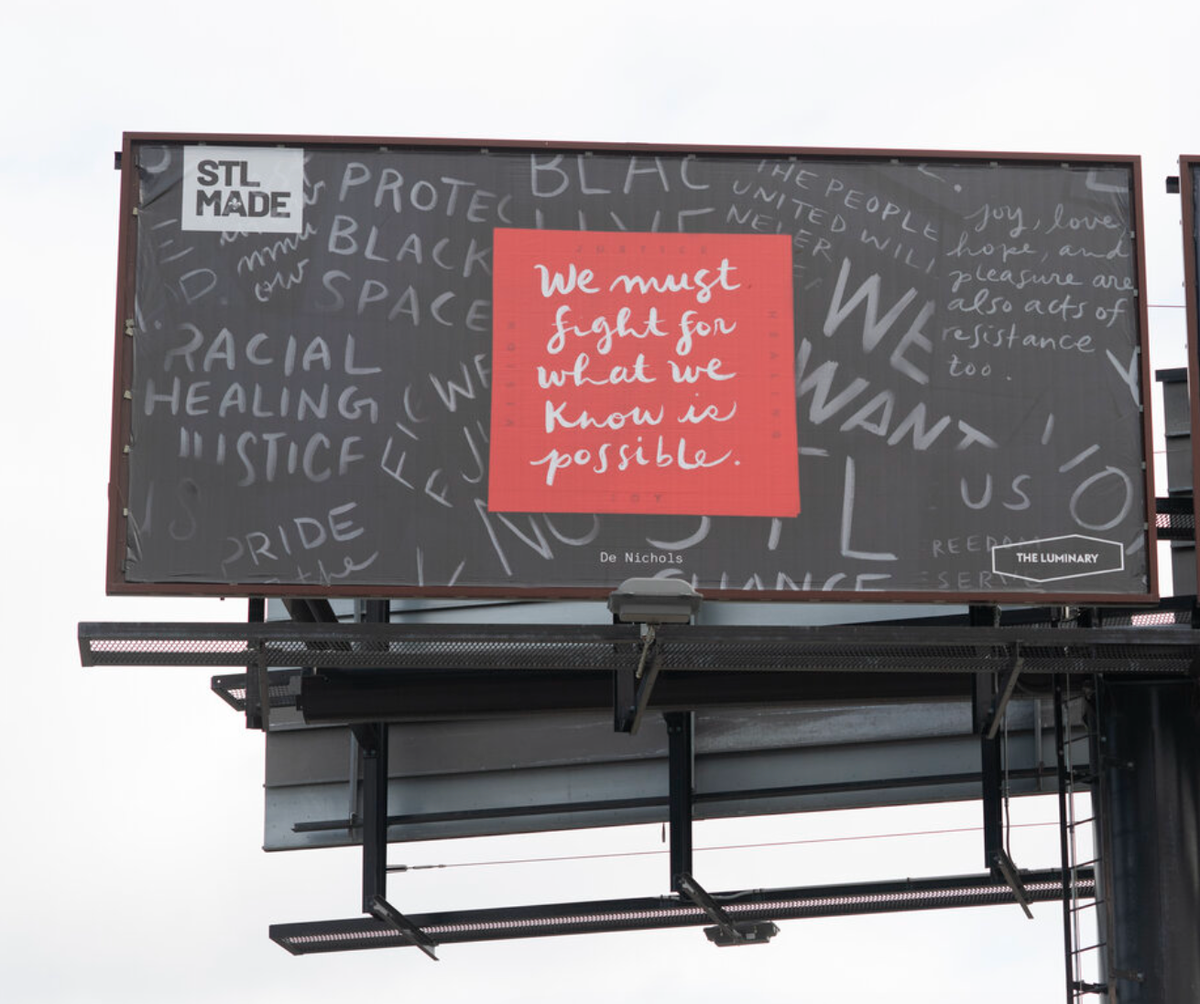 STL
MADE
PROTEC
BLACK
SPACE
BLAC
LIVE
THE PEOPLE
UNITED WILL
NEVER
joy, love,
hope, and
pleasure are
also acts of
resistance
too.
RACIAL
HEALING
JUSTICE
JUSTICE
We must
fight for
what we
Know is
possible.
HEALING
JOY
WE
WANT
US
PRIDE
the
NO
STL
CHANGE
De Nichols
REEDOM
ESERVE
THE LUMINARY